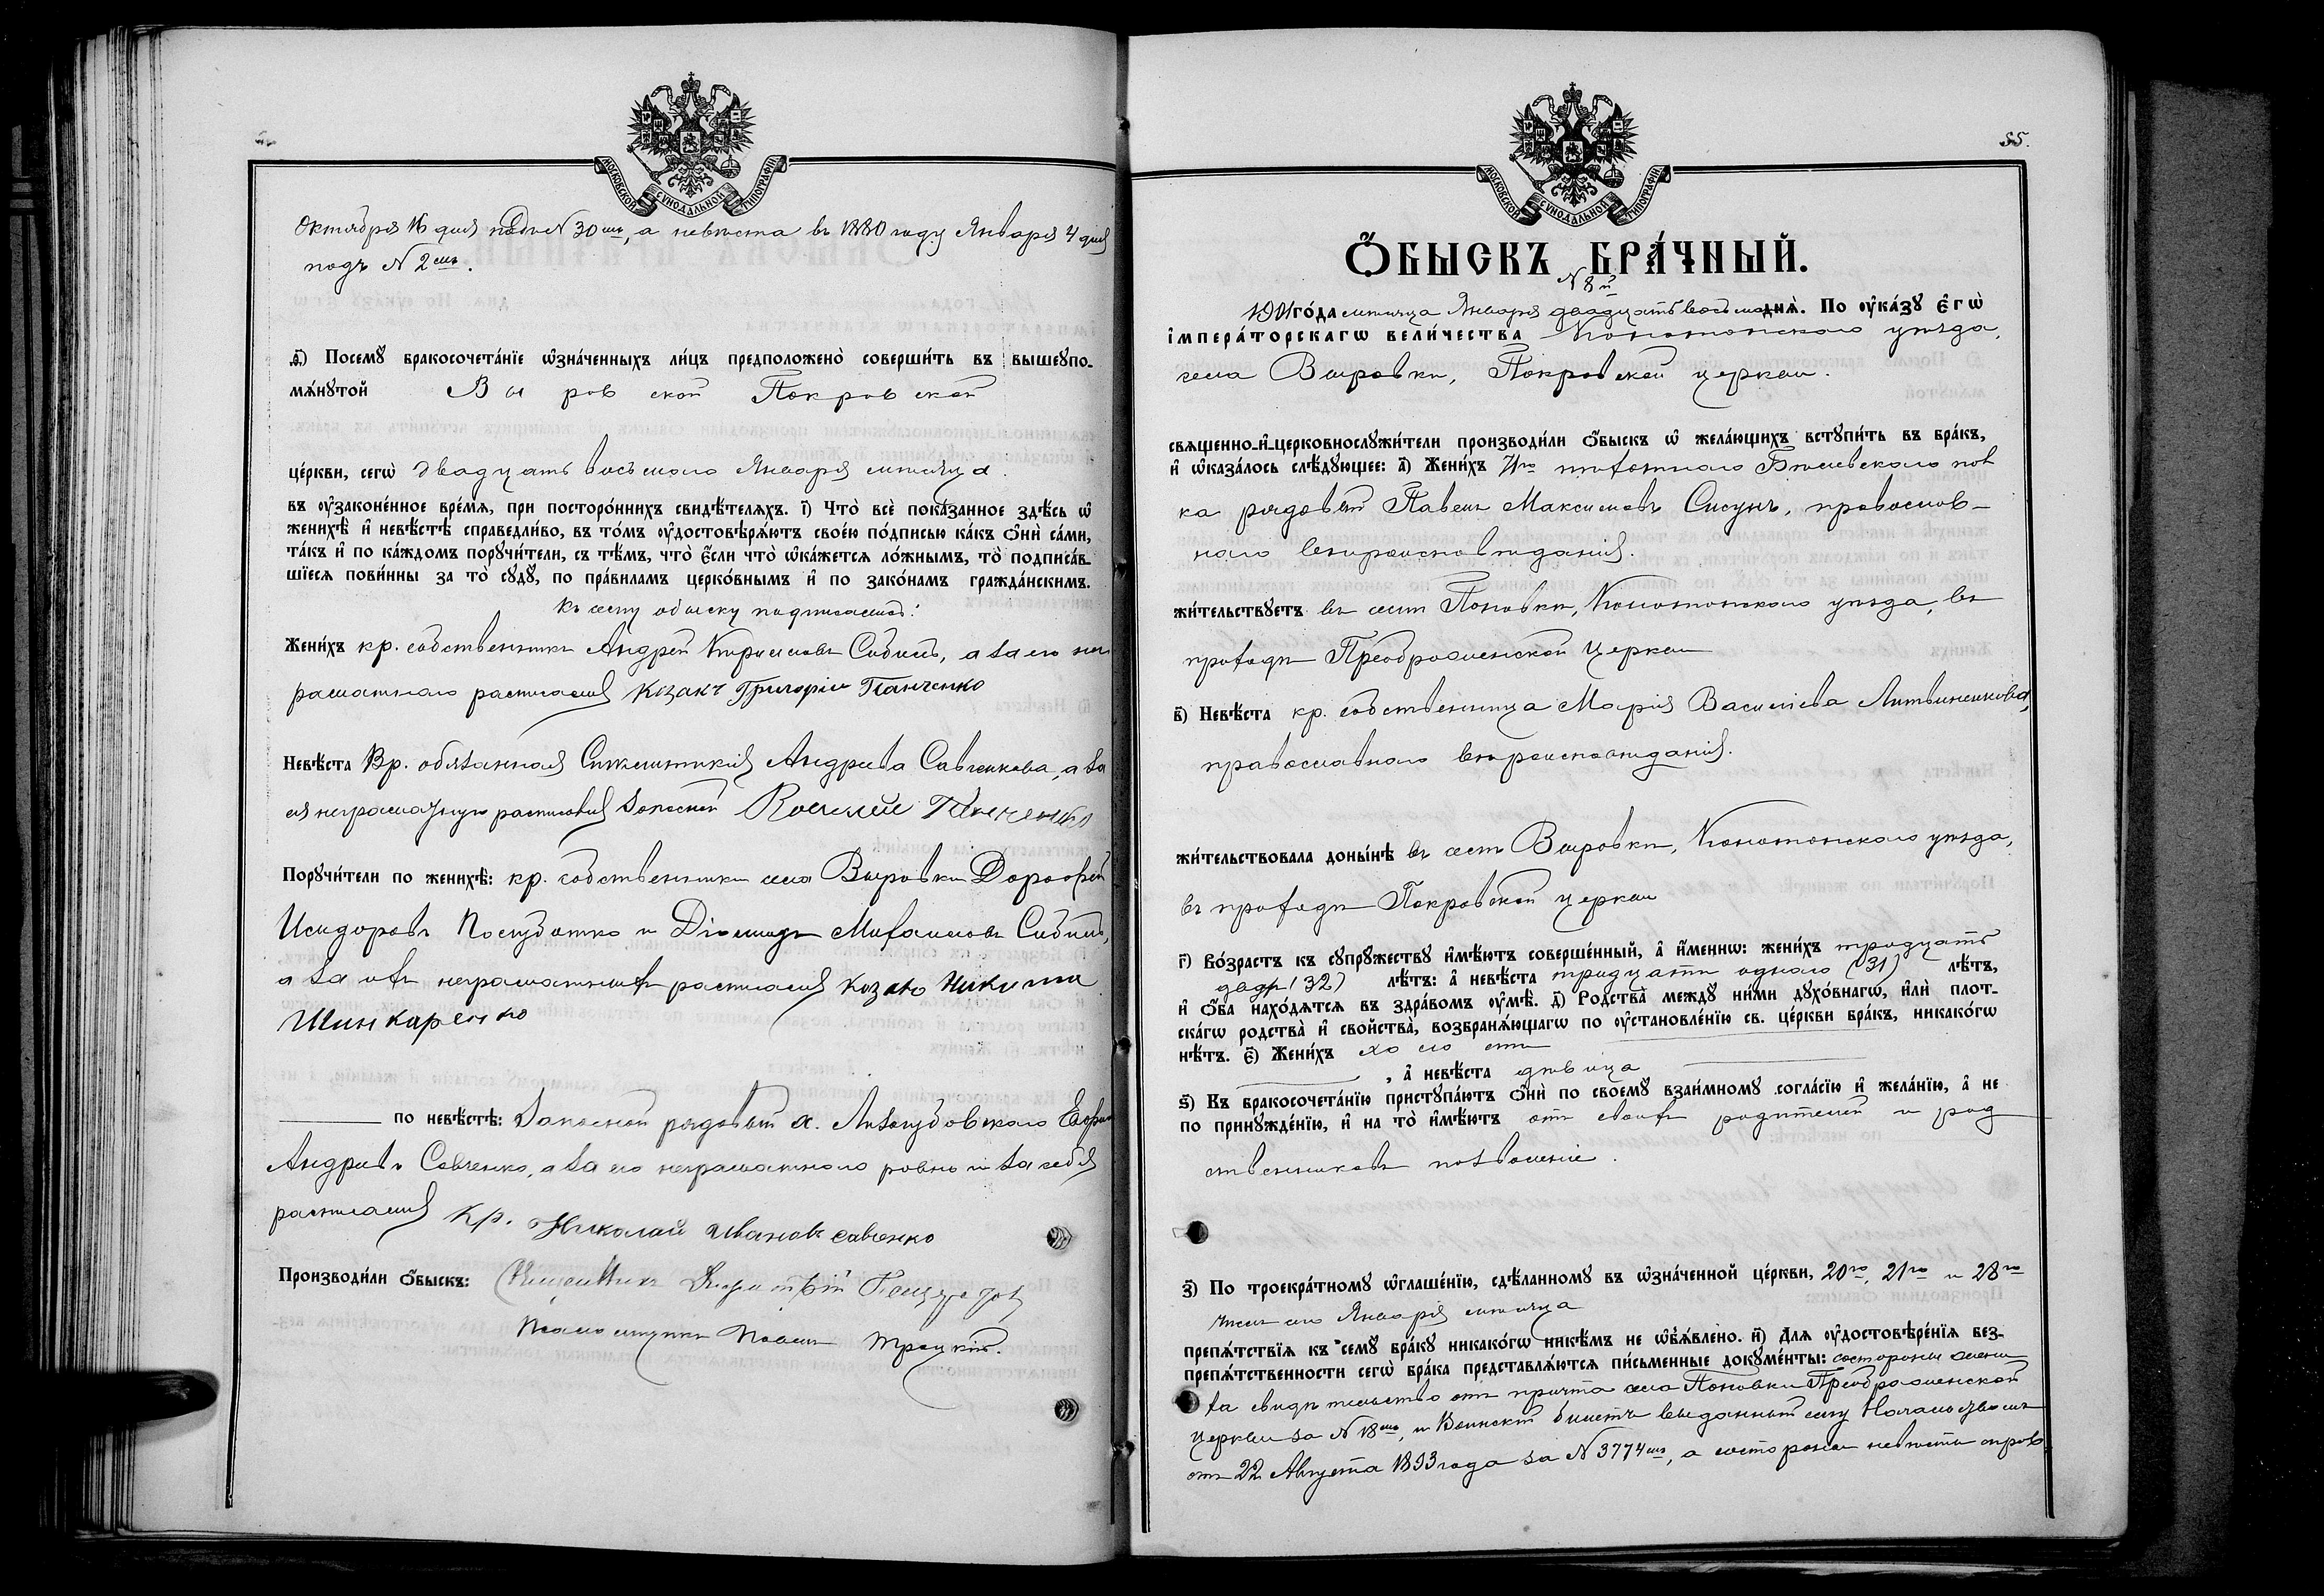 МОСКОВСКОЙ СѴНОДАЛЬНОЙ ТИПОГРАФІИ
Октября 16 дня подъ N 30мъ, а невѣста въ 1880 году Января 4 дня
подъ N 2мъ.
ѳ҃) Посемꙋ бракосочета́нїе ѡ҆зна́ченныхъ ли́цъ предположено̀ соверши́ть въ вышеꙋпо-
мѧ́нꙋтой Выровской Покровской
це́ркви, сегѡ̀ двадцать восьмого Января мѣсяца.
въ ᲂу҆законе́нное вре́мѧ, при посторо́ннихъ свидѣ́телѧхъ. і҃) Что̀ всѐ пока́занное здѣ́сь ѡ҆
женихѣ̀ и҆ невѣ́стѣ справедли́во, въ то́мъ ᲂу҆достовѣрѧ́ютъ свое́ю по́дписью ка́къ ѻ҆нѝ са́ми,
та́къ и҆ по ка́ждомъ порꙋчи́тели, съ тѣ́мъ, что̀ є҆́сли что̀ ѡ҆ка́жетсѧ ло́жнымъ, то̀ подписа́в-
шїесѧ пови́нны за то̀ сꙋдꙋ̀, по пра́виламъ церко́внымъ и҆ по зако́намъ гражда́нскимъ.
Къ сему обыску подписались:
Жени́хъ кр. собственникъ Андрей Сибиль, а за его не
грамотнаго расписался Козакъ Григорій Панченко
Невѣ́ста Вр. обязанная Андреева Савченкова, а за
ея неграмотную расписался запасной Панченко
Порꙋчи́тели по женихѣ̀: кр. собственники села Выровки Дорофей
Исидоровъ и Діомидъ Михаиловъ Сибиль,
а за ихъ неграмотныхъ расписался козакъ Никита
Шинкаренко
по невѣ́стѣ: Запасной рядовой х.
Андреевъ Савченко, а за его неграмотнаго равно и за себя
расписался кр. Николай Ивановъ Савченко
Производи́ли ѻ҆́быскъ: Священникъ Димитрій
Псаломщикъ Павелъ Троцкій.
55.
МОСКОВСКОЙ СѴНОДАЛЬНОЙ ТИПОГРАФІИ
Ѻ҆́БЫСКЪ БРА́ЧНЫЙ.
N 8й
1901 го́да мѣсяца Января двадцать восьмого днѧ̀. По ᲂу҆ка́зꙋ є҆гѡ̀
і҆мпера́торскагѡ вели́чества Конотопскаго уѣзда,
села Выровки, Покровской церкви.
свѧщенно-и҆-церковнослꙋжи́тели производи́ли ѻ҆́быскъ ѡ҆ жела́ющихъ встꙋпи́ть въ бра́къ,
и҆ ѡ҆каза́лось слѣ́дꙋющее: а҃) Жени́хъ 71го пѣхотнаго Бѣлевскаго пол
ка рядовой Павелъ Максимовъ Сисунъ, православ-
наго вѣроисповѣданія.
жи́тельствꙋетъ въ селѣ Поповкѣ, Конотопскаго уѣзда, въ
приходѣ Преображенской церкви
в҃) Невѣ́ста кр. собственница Марія Василіева Литвиненкова,
православнаго вѣроисповѣданія.
жи́тельствовала доны́нѣ въ селѣ Выровкѣ, Конотопскаго уѣзда,
въ приходѣ Покровской церкви
г҃) Во́зрастъ къ сꙋпрꙋ́жествꙋ и҆мѣ́ютъ соверше́нный, а҆ и҆́меннѡ: жени́хъ тридцать
два (32) лѣ́тъ: а҆ невѣ́ста тридцати одного (31) лѣ́тъ,
и҆ ѻ҆́ба нахо́дѧтсѧ въ здра́вомъ ᲂу҆мѣ̀. д҃) Родства̀ междꙋ̀ ни́ми дꙋхо́внагѡ, и҆лѝ плот-
ска́гѡ родства̀ и҆ сво́йства, возбранѧ́ющагѡ по ᲂу҆становле́нїю св. це́ркви бра́къ, никако́гѡ
нѣ́тъ. є҃) Жени́хъ холостъ
, а҆ невѣ́ста дѣвица
ѕ҃) Къ бракосочета́нїю пристꙋпа́ютъ ѻ҆нѝ по своемꙋ̀ взаи́мномꙋ согла́сїю и҆ жела́нїю, а҆ не
по принꙋжде́нїю, и҆ на то̀ и҆мѣ́ютъ отъ своихъ родителей и род
ственниковъ позволеніе.
з҃) По троекра́тномꙋ ѡ҆глаше́нїю, сдѣ́ланномꙋ въ ѡ҆зна́ченной це́ркви, 20го, 21го и 28го
числъ Января мѣсяца
препѧ́тствїѧ къ семꙋ̀ бра́кꙋ никако́гѡ никѣ́мъ не ѡ҆б̾ѧ́влено. и҃) Длѧ ᲂу҆достовѣре́нїѧ без-
препѧ́тственности сегѡ̀ бра́ка представлѧ́ютсѧ пи́сьменные докꙋме́нты: состороны жени
ха свидѣтельство отъ причта села Поповки Преображенской
церкви за N 18мъ, и Воинскій билетъ выданный ему Начальствомъ
отъ 22 Августа 1893 года за N 3774мъ, а состороны невѣсты справ